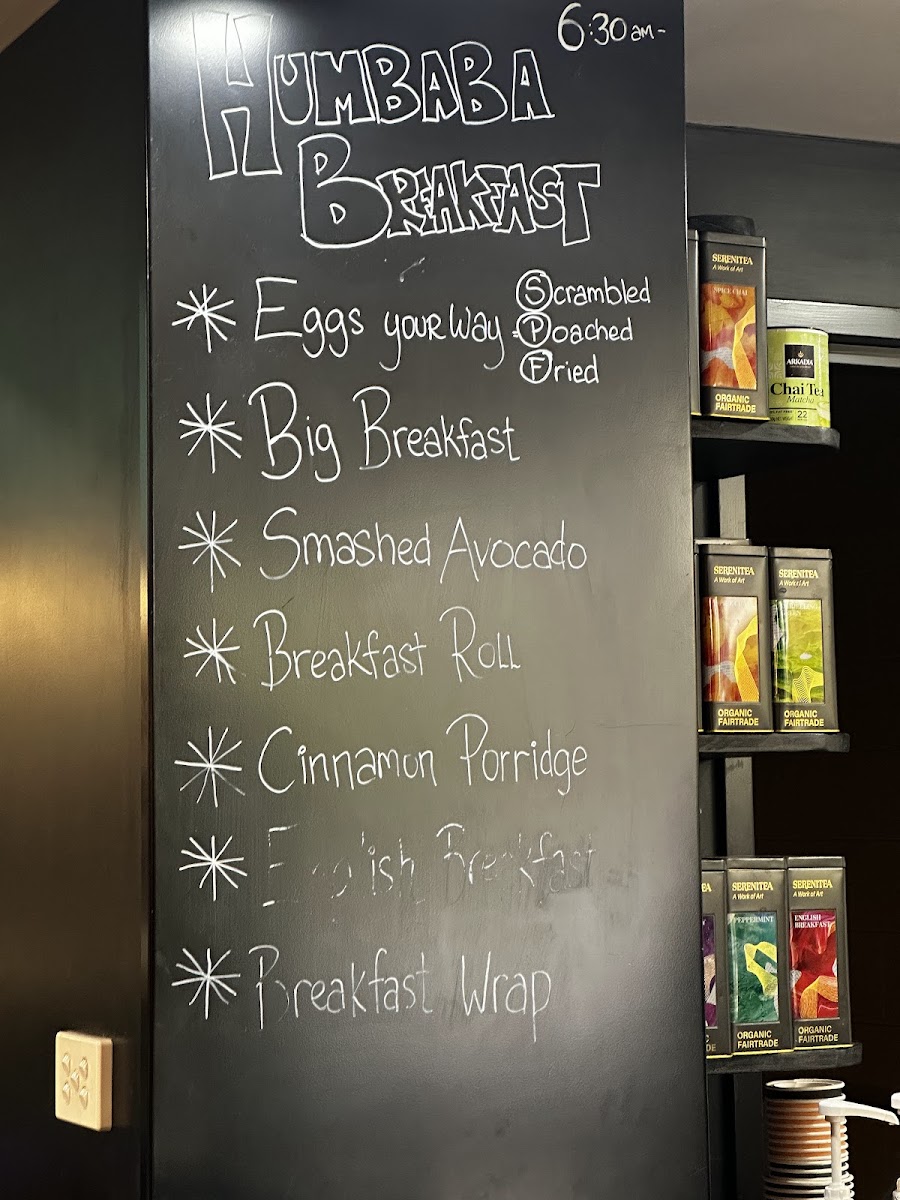 6:30 am-
HUMBABA
BREAKFAST
* Eggs your way - Scrambled
Poached
Fried
* Big Breakfast
* Smashed Avocado
* Breakfast Roll
* Cinnamon Porridge
* English Breakfast
* Breakfast Wrap
SERENITEA
A Work of Art
SPICE CHAI
ORGANIC
FAIRTRADE
ARKADIA
Chai Tea
Matcha
22
SERENITEA
A Work of Art
ORGANIC
FAIRTRADE
SERENITEA
A Work of Art
ORGANIC
FAIRTRADE
SERENITEA
A Work of Art
PEPPERMINT
ORGANIC
FAIRTRADE
SERENITEA
A Work of Art
ENGLISH
BREAKFAST
ORGANIC
FAIRTRADE